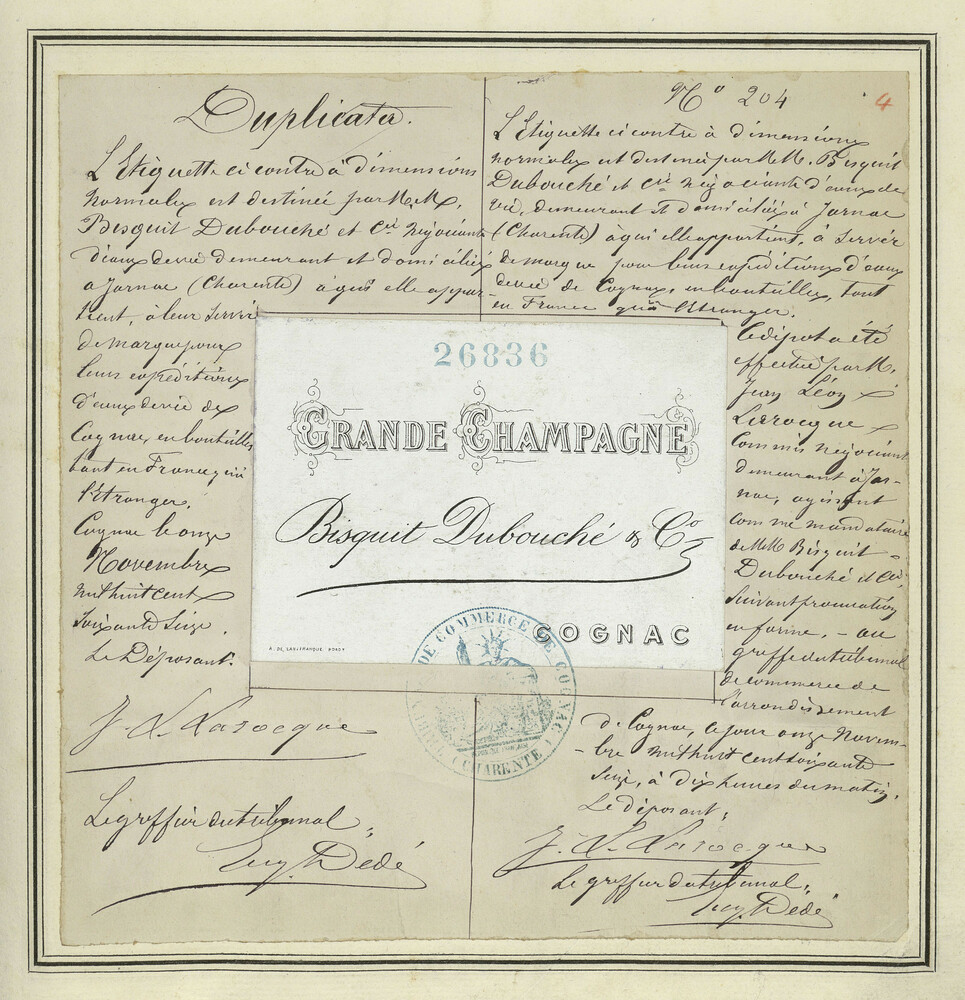 Duplicata.
L'Etiquette ci contre à dimensions
normales est destinée par M.M.
Bisquit Dubouché et Cie Négociants
d'eaux de vie demeurant et domiciliés
à Jarnac (Charente) à qui elle appar-
tient, à leur servir
de marque pour
leurs expéditions
d'eaux de vie de
Cognac, en bouteilles
tant en France qu'à
l'étranger.
Cognac le onze
Novembre
mil huit cent
soixante seize.
Le Déposant.
J. L. Larocque
Le greffier du tribunal,
Eug. Dedé
No 204
4
L'Etiquette ci contre à dimensions
normales est destinée par M.M. Bisquit
Dubouché et Cie Négociants d'eaux de
vie, demeurant et domiciliés à Jarnac
(Charente) à qui elle appartient, à servir
de marque pour leurs expéditions d'eaux
de vie de Cognac, en bouteilles, tant
en France qu'à l'Etranger.
Ce dépot a été
effectué par M.
Jean Léon
Larocque
Commis négociant
demeurant à Jar-
nac, agissant
comme mandataire
de MM Bisquit
Dubouché et Cie
suivant procuration
en forme, - au
greffe du tribunal
de commerce de
l'arrondissement
de Cognac, ce jour onze Novem-
-bre mil huit cent soixante
seize, à dix heures du matin.
Le déposant,
J. L. Larocque
Le greffier du tribunal,
Eug. Dedé
26836
GRANDE CHAMPAGNE
Bisquit Dubouché & Co
COGNAC
A. DE LASTFRANQUE BORDX
DE COMMERCE DE COGNAC
(CHARENTE)